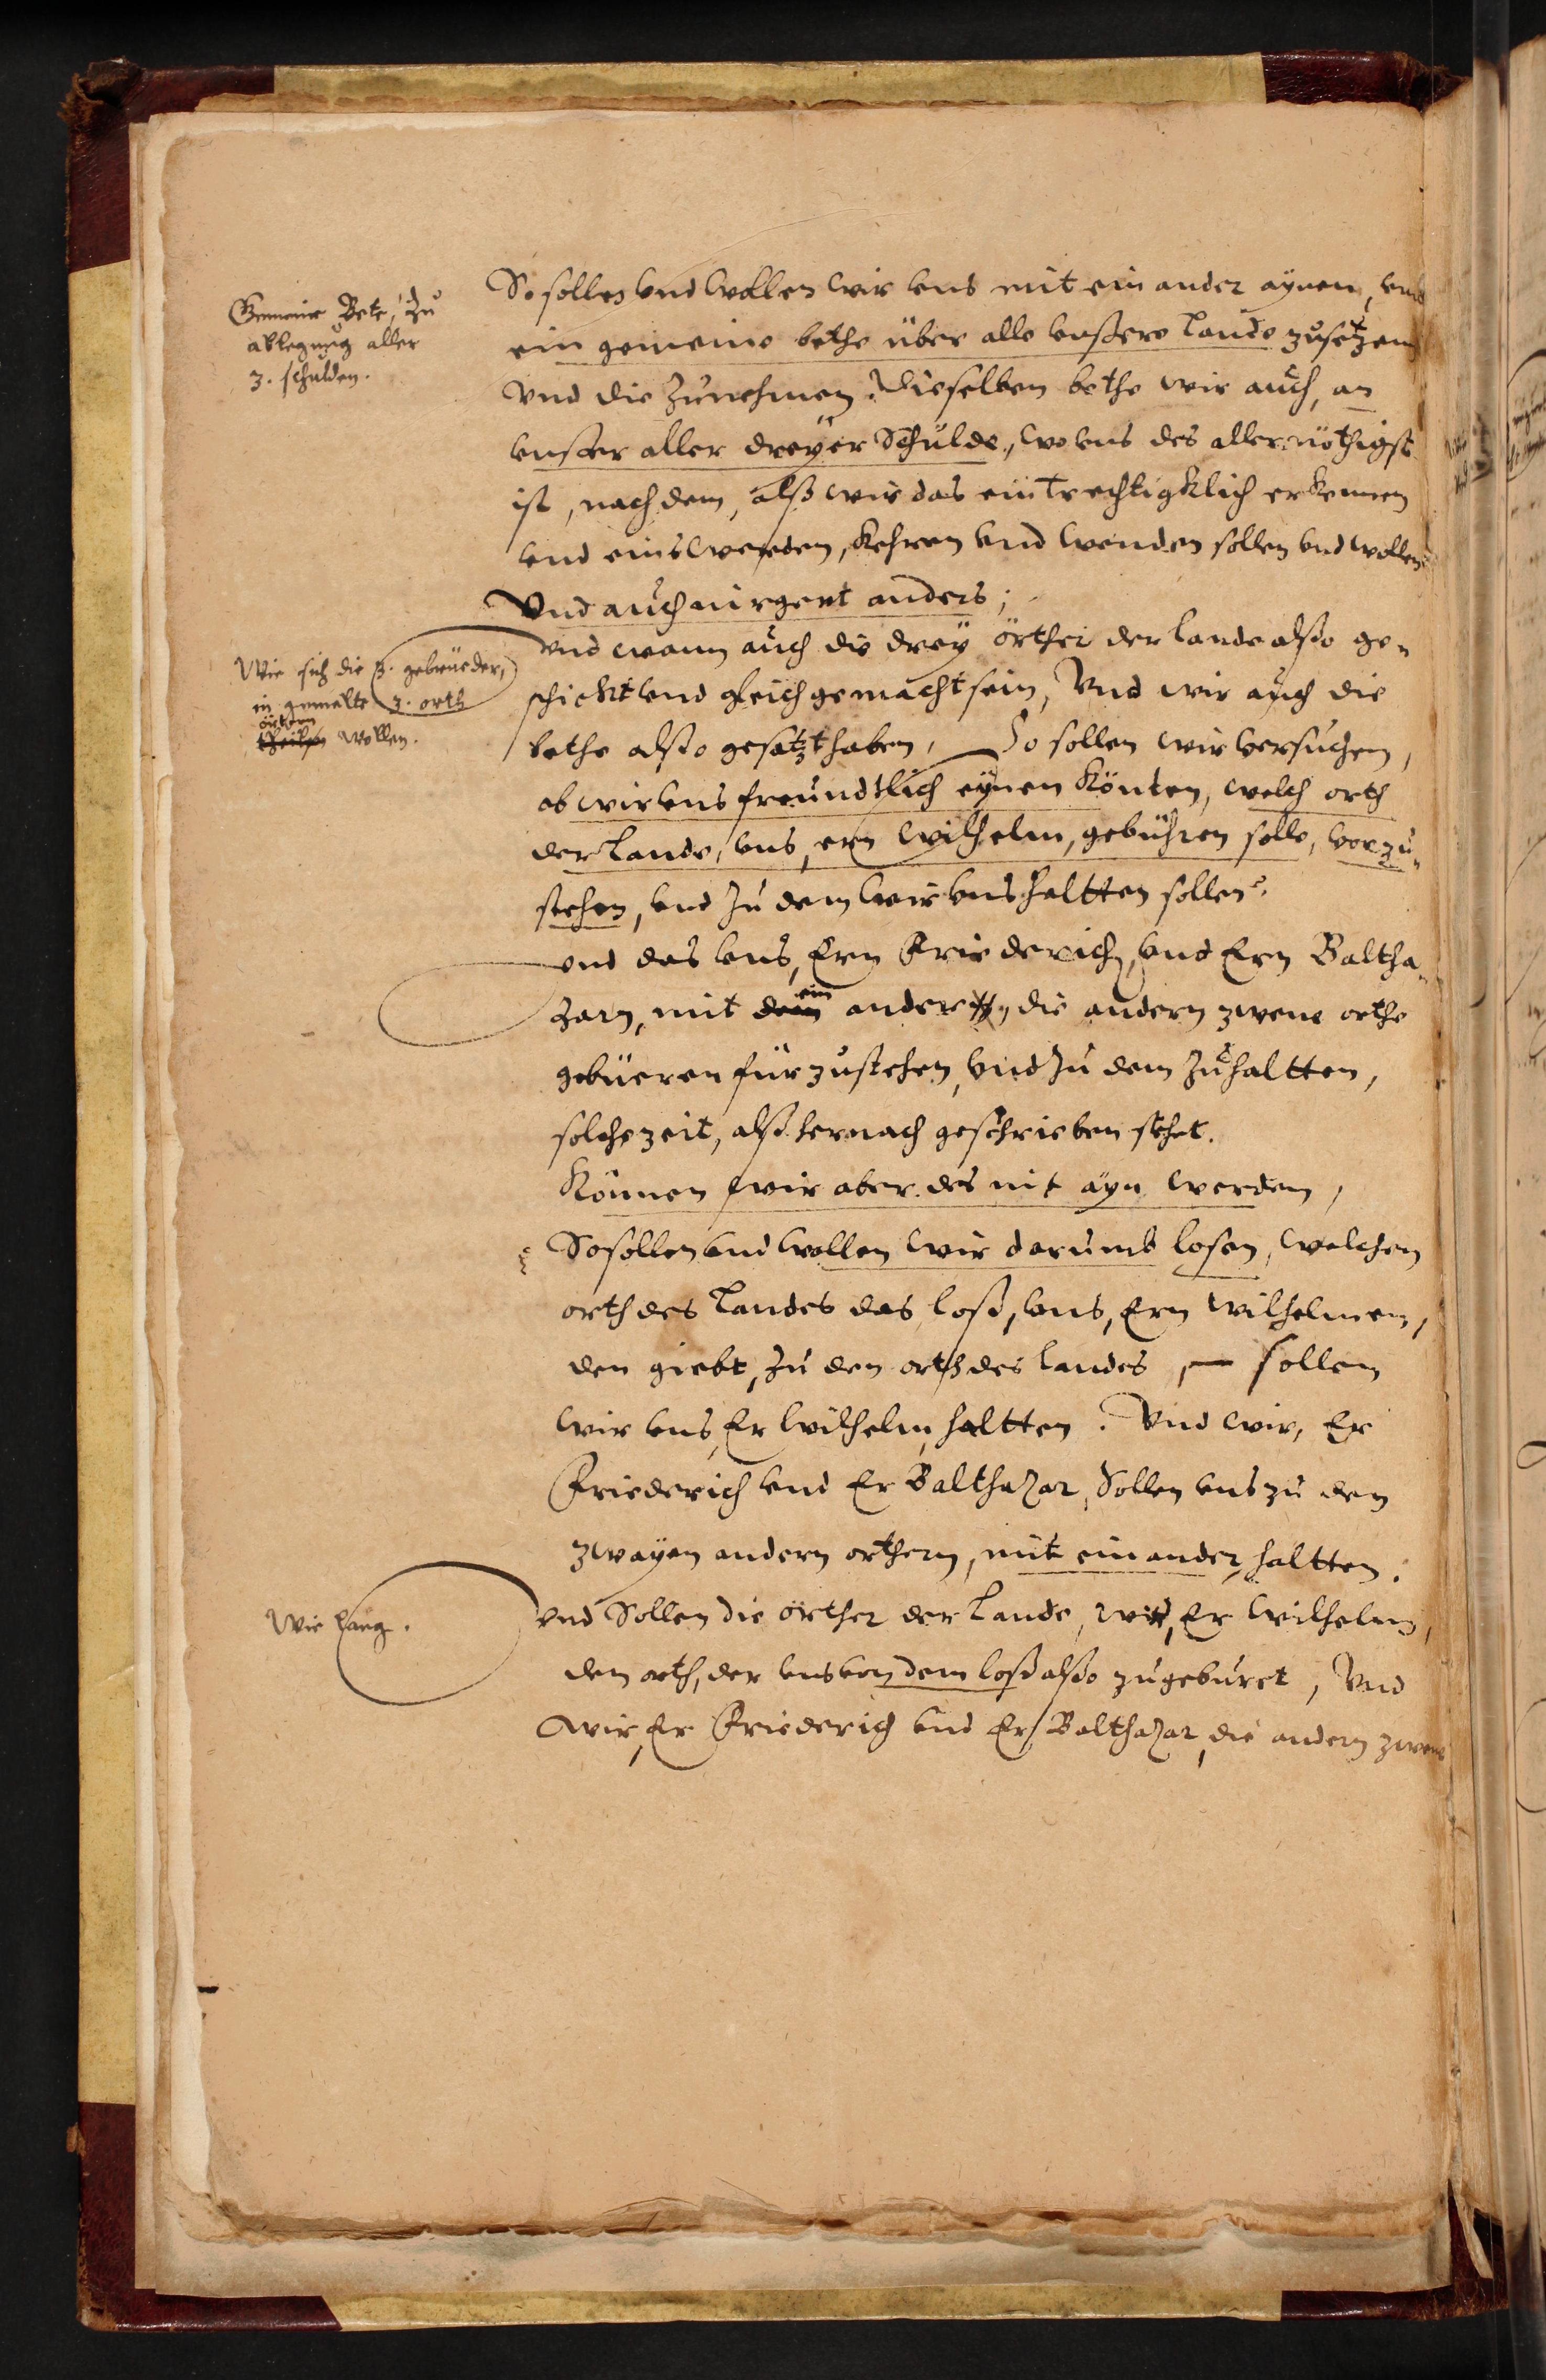 Gemeine Bete, zu
ablegung aller
3. schulden.
So sollen vnd wollen wir vns mit ein ander aynen, vnd
ein gemeine bethe über alle vnßere Lande zusetzen
vnd die zunehmen. Dieselben bethe wir auch, an
vnßer aller dreyer Schulde, wo vns des aller nöthigst
ist, nach dem, alß wir das eintrechtigklich erkennen
vnd eins werden, kehren vnd wenden sollen vnd wollen
Vnd auch nirgent anders;
Wie sich die 3. gebrüeder,
in gemelte 3. orth
örtern
theilen wollen.
vnd wann auch die drey örther der lande alßo ge-
schickt vnd gleich gemacht sein, Vnd wir auch die
bethe alßo gesatzt haben, So sollen wir versuchen,
ob wir vns freundtlich eynen könten, welch orth
der Lande, vns, ern Wilhelm, gebühren solle, vorzu-
stehen, vnd zu dem wir vns haltten sollen.
vnd das vns, Ern Friederich, vnd Ern Baltha-
zarn, mit dem ein ander, die andern zwene orthe
gebüeren fürzustehen, vnd zu dem zuhaltten,
solche zeit, alß hernach geschrieben stehet.
Können wir aber des nit ayn werden,
So sollen vnd wollen wir darumb losen, welchen
orth des Landes das loß, vns, Ern Wilhelmen,
den giebt, zu den orth des landes, sollen
wir vns, Er Wilhelm, haltten. Vnd wir, Er
Friederich vnd Er Balthazar, Sollen vns zu den
zwayen andern orthern, mit einander, haltten.
Wie lang.
vnd Sollen die örther der Lande, wir, Er Wilhelm,
den orth, der vns von dem loß alßo zugeburet, Vnd
wir, Er Friederich vnd Er Balthazar, die andern zwene